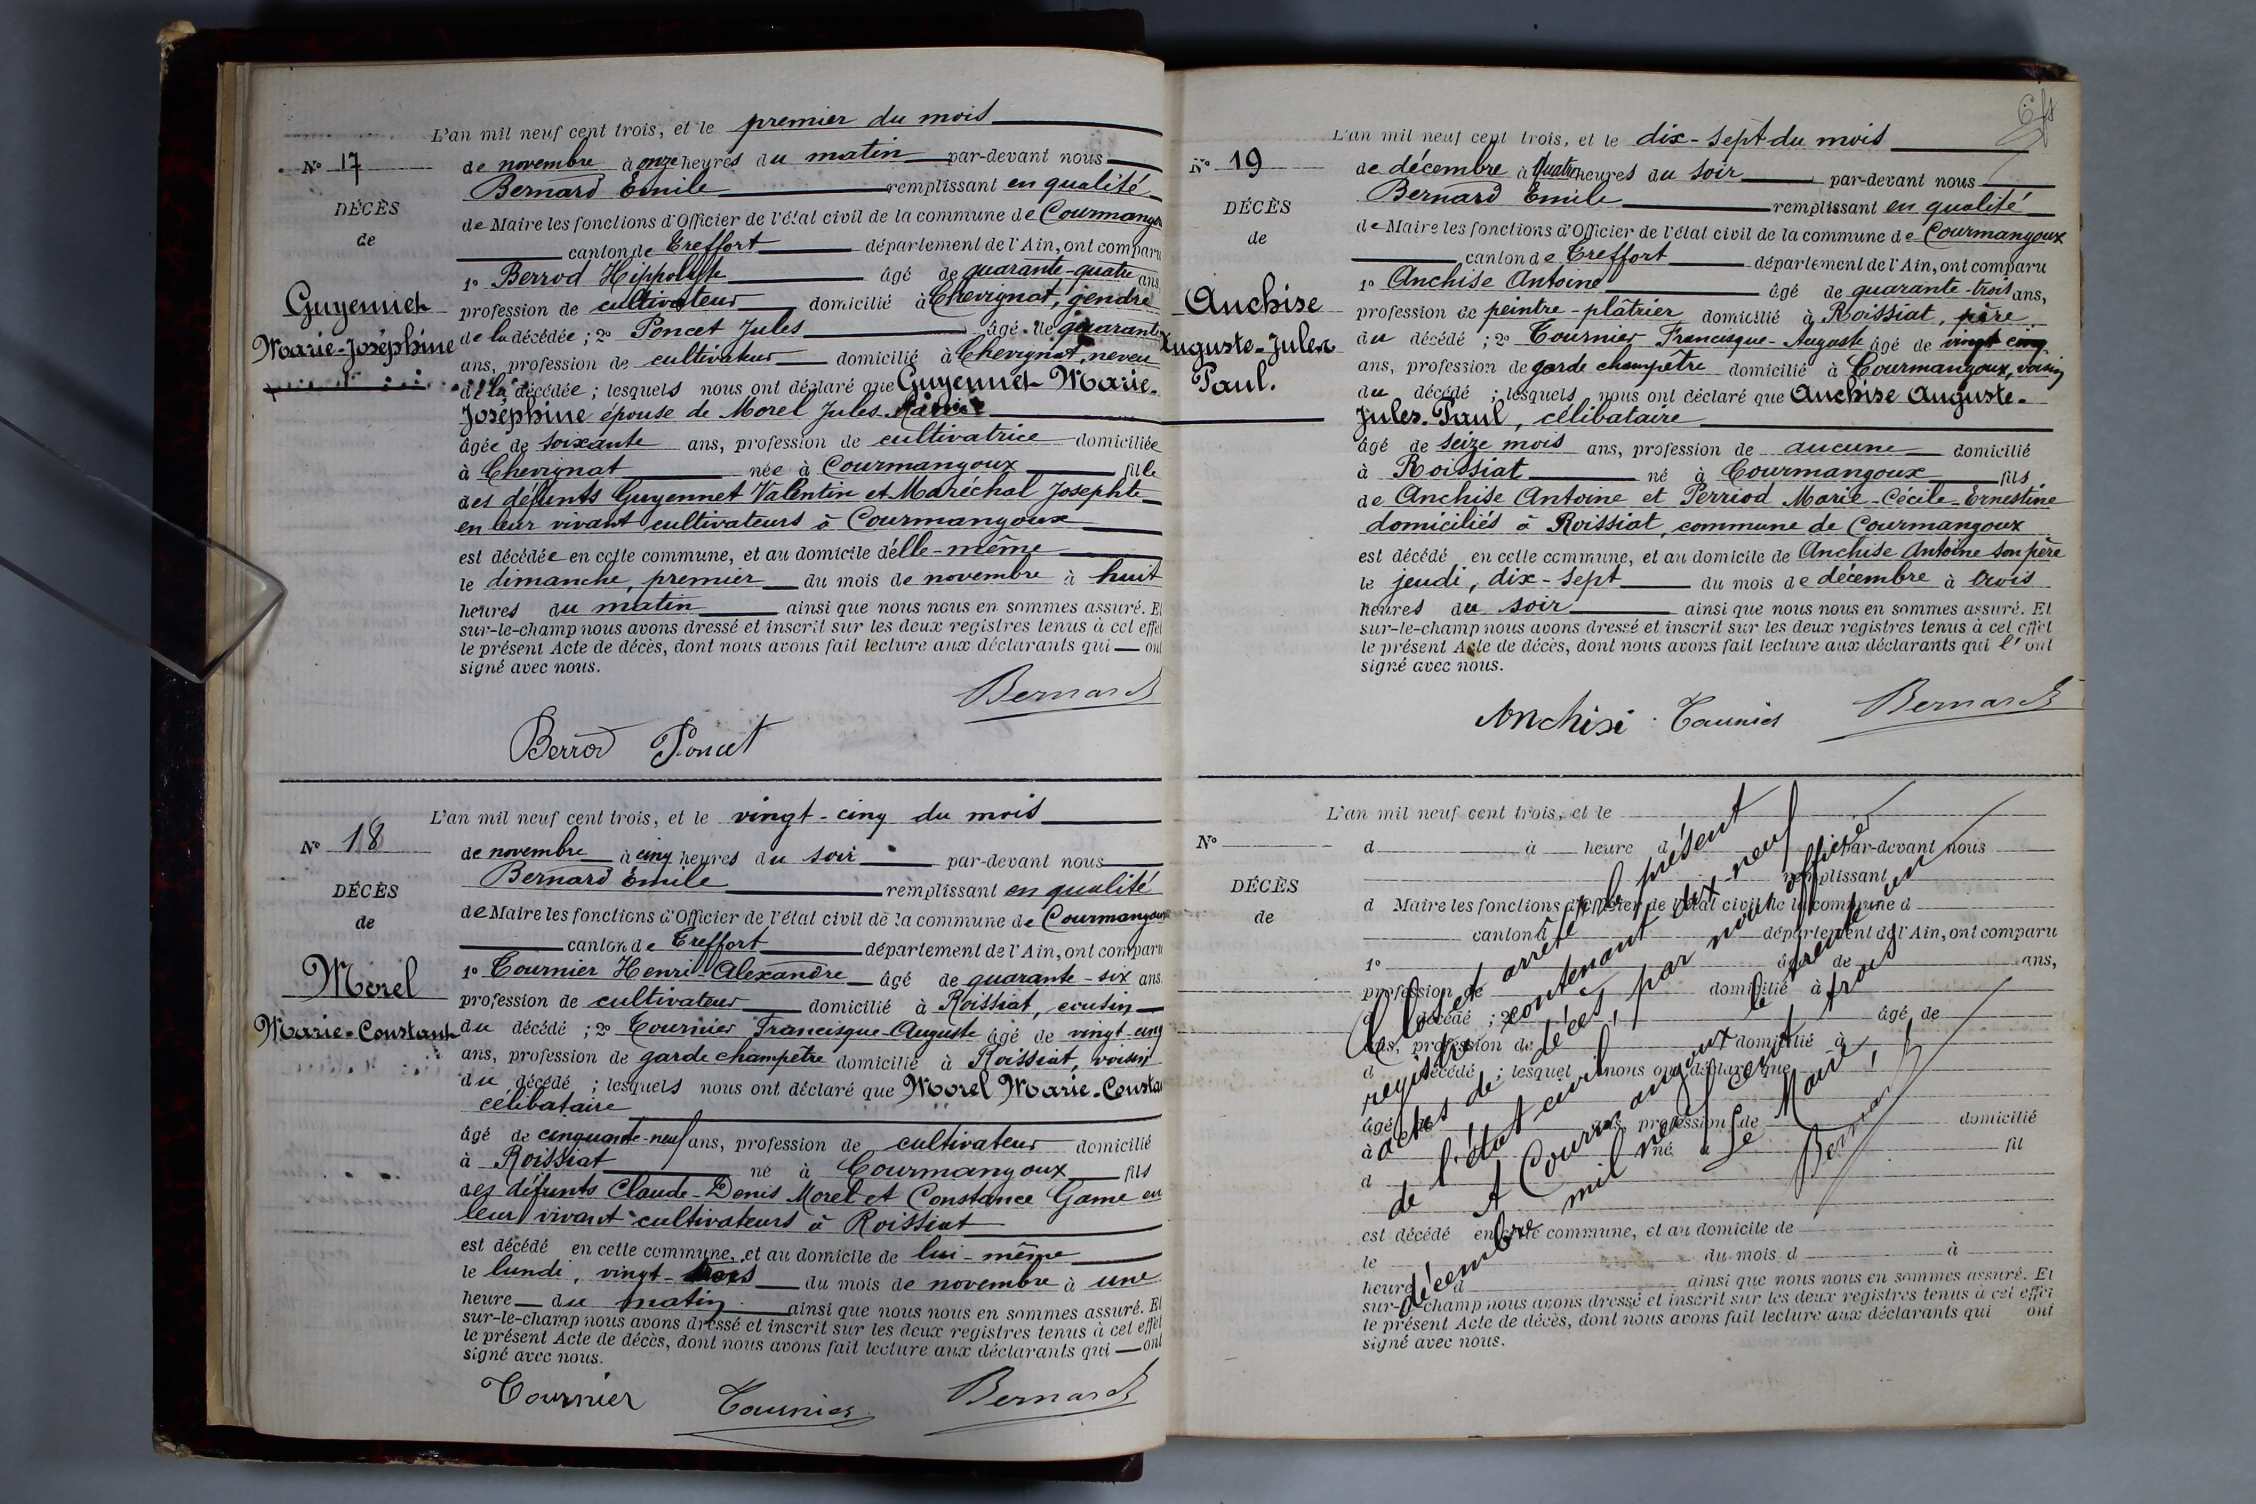 L'an mil neuf cent trois, et le premier du mois
N° 17
de novembre à onze heures du matin par-devant nous
Bernard Emile remplissant en qualité
DÉCÈS
de Maire les fonctions d'Officier de l'état civil de la commune de Courmangoux
de
canton de Treffort département de l'Ain, ont comparu
1° Berrod Hippolyte âgé de quarante-quatre ans,
Guyennet
profession de cultivateur domicilié à Chevignat, gendre
Marie-Joséphine
de la décédée ; 2° Poncet Jules âgé de quarante
ans, profession de cultivateur domicilié à Chevignat, neveu
de la décédée ; lesquels nous ont déclaré que Guyennet Marie-
Joséphine épouse de Morel Jules
âgée de soixante ans, profession de cultivatrice domiciliée
à Chevignat née à Courmangoux fille
des défunts Guyennet Valentin et Maréchal Josephte
en leur vivant cultivateurs à Courmangoux
est décédée en cette commune, et au domicile d'elle-même
le dimanche, premier du mois de novembre à huit
heures du matin ainsi que nous nous en sommes assuré. Et
sur-le-champ nous avons dressé et inscrit sur les deux registres tenus à cet effet
le présent Acte de décès, dont nous avons fait lecture aux déclarants qui ont
signé avec nous.
Bernard
Berrod Poncet
L'an mil neuf cent trois, et le vingt-cinq du mois
N° 18
de novembre à cinq heures du soir par-devant nous
Bernard Emile remplissant en qualité
DÉCÈS
de Maire les fonctions d'Officier de l'état civil de la commune de Courmangoux
de
canton de Treffort département de l'Ain, ont comparu
1° Tournier Henri-Alexandre âgé de quarante-six ans
Morel
profession de cultivateur domicilié à Roissiat, cousin
Marie-Constant
du décédé ; 2° Tournier Francisque-Auguste âgé de vingt-cinq
ans, profession de garde champêtre domicilié à Roissiat, voisin
du décédé ; lesquels nous ont déclaré que Morel Marie-Constant
célibataire
âgé de cinquante-neuf ans, profession de cultivateur domicilié
à Roissiat né à Courmangoux fils
des défunts Claude-Denis Morel et Constance Game en
leur vivant cultivateurs à Roissiat
est décédé en cette commune, et au domicile de lui-même
le lundi, vingt-trois du mois de novembre à une
heure du matin ainsi que nous nous en sommes assuré. Et
sur-le-champ nous avons dressé et inscrit sur les deux registres tenus à cet effet
le présent Acte de décès, dont nous avons fait lecture aux déclarants qui ont
signé avec nous.
Tournier Tournier Bernard
L'an mil neuf cent trois, et le dix-sept du mois
N° 19
de décembre à quatre heures du soir par-devant nous
Bernard Emile remplissant en qualité
DÉCÈS
de Maire les fonctions d'Officier de l'état civil de la commune de Courmangoux
de
canton de Treffort département de l'Ain, ont comparu
1° Anchise Antoine âgé de quarante-trois ans,
Anchise
profession de peintre-plâtrier domicilié à Roissiat, père
Auguste-Jules
du décédé ; 2° Tournier Francisque-Auguste âgé de vingt cinq
Paul.
ans, profession de garde champêtre domicilié à Courmangoux, voisin
du décédé ; lesquels nous ont déclaré que Anchise Auguste-
Jules-Paul, célibataire
âgé de seize mois ans, profession de aucune domicilié
à Roissiat né à Courmangoux fils
de Anchise Antoine et Perriod Marie-Cécile-Ernestine
domiciliés à Roissiat, commune de Courmangoux
est décédé en cette commune, et au domicile de Anchise Antoine son père
le jeudi, dix-sept du mois de décembre à trois
heures du soir ainsi que nous nous en sommes assuré. Et
sur-le-champ nous avons dressé et inscrit sur les deux registres tenus à cet effet
le présent Acte de décès, dont nous avons fait lecture aux déclarants qui l'ont
signé avec nous.
Anchisi Tournier Bernard
L'an mil neuf cent trois, et le
N°
d à heure d par-devant nous
remplissant
DÉCÈS
d Maire les fonctions d'Officier de l'état civil de la commune d
de
canton d département de l'Ain, ont comparu
1° âgé de ans,
profession de domicilié à
d décédé ; 2° âgé de
ans, profession de domicilié à
d décédé ; lesquel nous ont déclaré que
âgé de ans, profession de domicilié
à né à fil
d
est décédé en cette commune, et au domicile de
le du mois d à
heure d ainsi que nous nous en sommes assuré. Et
sur-le-champ nous avons dressé et inscrit sur les deux registres tenus à cet effet
le présent Acte de décès, dont nous avons fait lecture aux déclarants qui ont
signé avec nous.
Clos et arrêté le présent
registre contenant dix-neuf
actes de décès, par nous officier
de l'état civil
A Courmangoux le trente un
décembre mil neuf cent trois
Le Maire,
Bernard